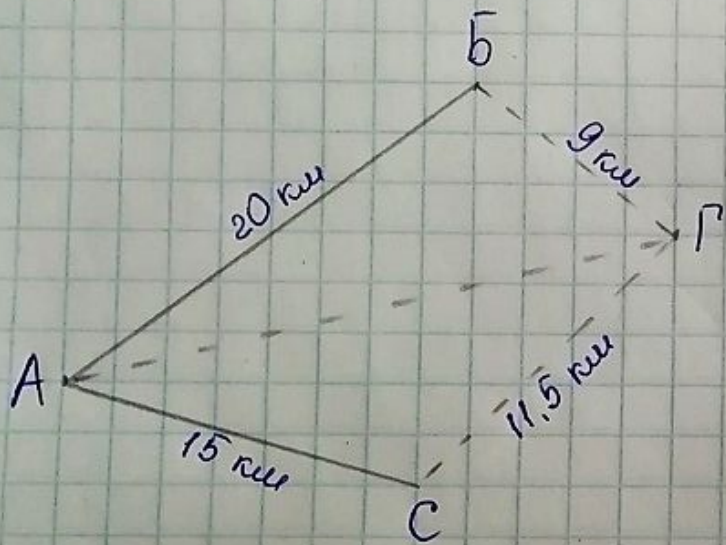 Б
9 км
20 км
Г
А
11,5 км
15 км
С